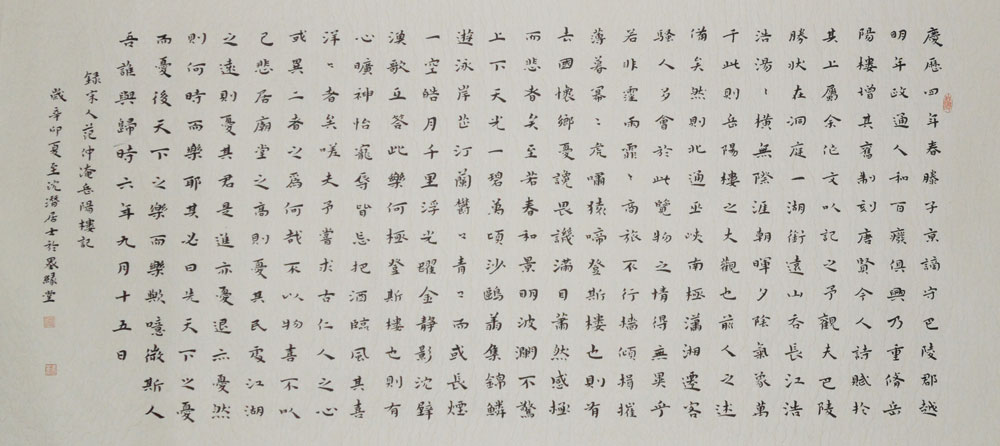 慶曆四年春滕子京謫守巴陵郡越
明年政通人和百廢俱興乃重脩岳
陽樓增其舊制刻唐賢今人詩賦於
其上屬余作文以記之予觀夫巴陵
勝狀在洞庭一湖銜遠山吞長江浩
浩湯〻橫無際涯朝暉夕陰氣象萬
千此則岳陽樓之大觀也前人之述
備矣然則北通巫峽南極瀟湘遷客
騷人多會於此覽物之情得無異乎
若非霪雨霏〻商旅不行檣傾楫摧
薄暮冥〻虎嘯猿啼登斯樓也則有
去國懷鄉憂讒畏譏滿目蕭然感極
而悲者矣至若春和景明波瀾不驚
上下天光一碧萬頃沙鷗翔集錦鱗
遊泳岸芷汀蘭鬱〻青〻而或長煙
一空皓月千里浮光躍金靜影沈璧
漁歌互答此樂何極登斯樓也則有
心曠神怡寵辱皆忘把酒臨風其喜
洋〻者矣嗟夫予嘗求古仁人之心
或異二者之為何哉不以物喜不以
己悲居廟堂之高則憂其民處江湖
之遠則憂其君是進亦憂退亦憂然
則何時而樂耶其必曰先天下之憂
而憂後天下之樂而樂歟噫微斯人
吾誰與歸時六年九月十五日
錄宋人范仲淹岳陽樓記
歲辛卯夏至沈潛居士於墨緣堂